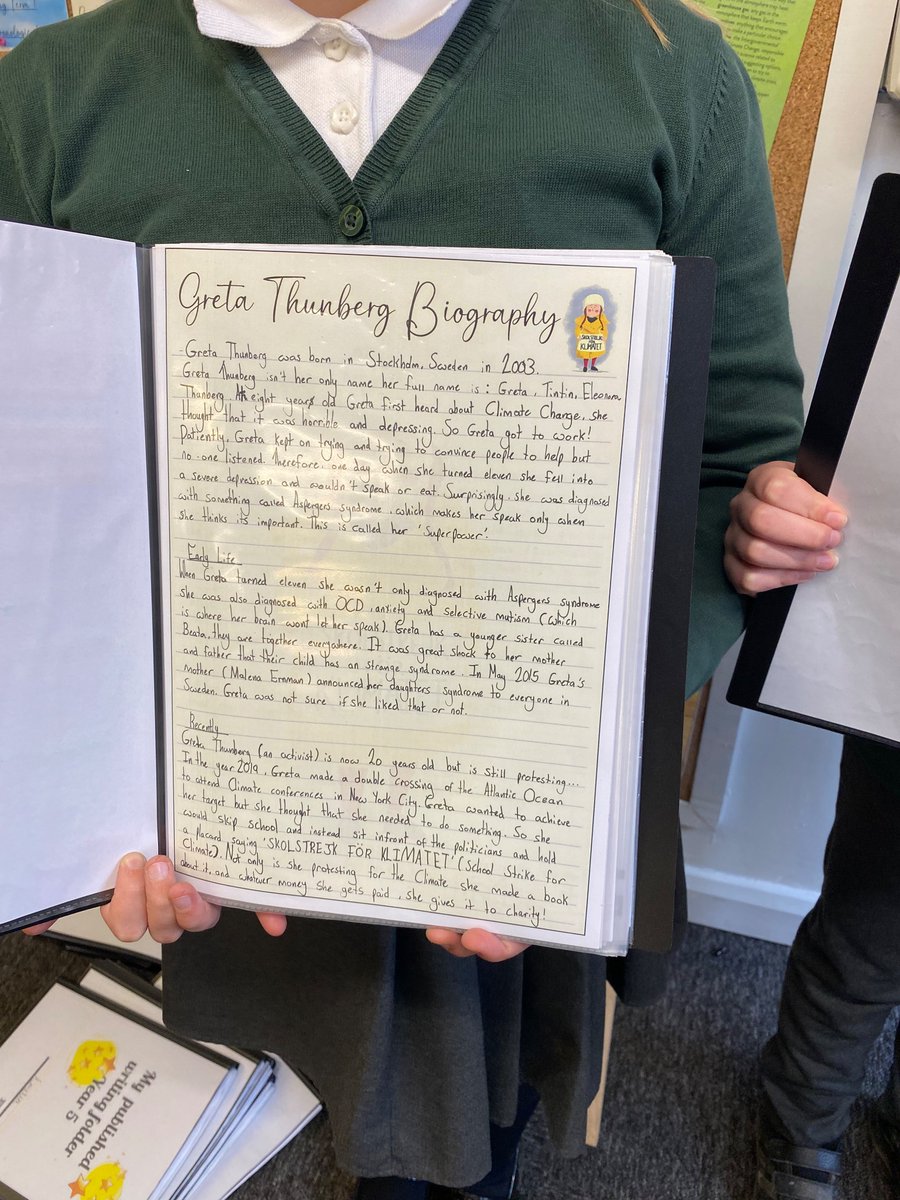 Greta Thunberg Biography
SKOLSTREJK
FÖR
KLIMATET
Greta Thunberg was born in Stockholm, Sweden in 2003.
Greta Thunberg isn't her only name her full name is : Greta, Tintin, Eleonora,
Thunberg. At eight years old Greta first heard about Climate Change, she
thought that it was horrible and depressing. So Greta got to work!
Patiently, Greta kept on trying and trying to convince people to help but
no-one listened. Therefore, one day when she turned eleven she fell into
a severe depression and wouldn't speak or eat. Surprisingly, she was diagnosed
with something called Aspergers syndrome, which makes her speak only when
she thinks its important. This is called her 'Superpower'.
Early Life
When Greta turned eleven she wasn't only diagnosed with Aspergers syndrome
she was also diagnosed with OCD, anxiety and selective mutism (which
is where her brain wont let her speak). Greta has a younger sister called
Beata, they are together everywhere. It was great shock to her mother
and father that their child has an strange syndrome. In May 2015 Greta's
mother (Malena Ernman) announced her daughters syndrome to everyone in
Sweden. Greta was not sure if she liked that or not.
Recently
Greta Thunberg (an activist) is now 20 years old but is still protesting...
In the year 2019, Greta made a double crossing of the Atlantic Ocean
to attend Climate conferences in New York City. Greta wanted to achieve
her target but she thought that she needed to do something. So she
would skip school and instead sit infront of the politicians and hold
a placard saying 'SKOLSTREJK FÖR KLIMATET' (School Strike for
Climate). Not only is she protesting for the Climate she made a book
about it, and whatever money she gets paid, she gives it to charity!
My published
writing folder
Year 5